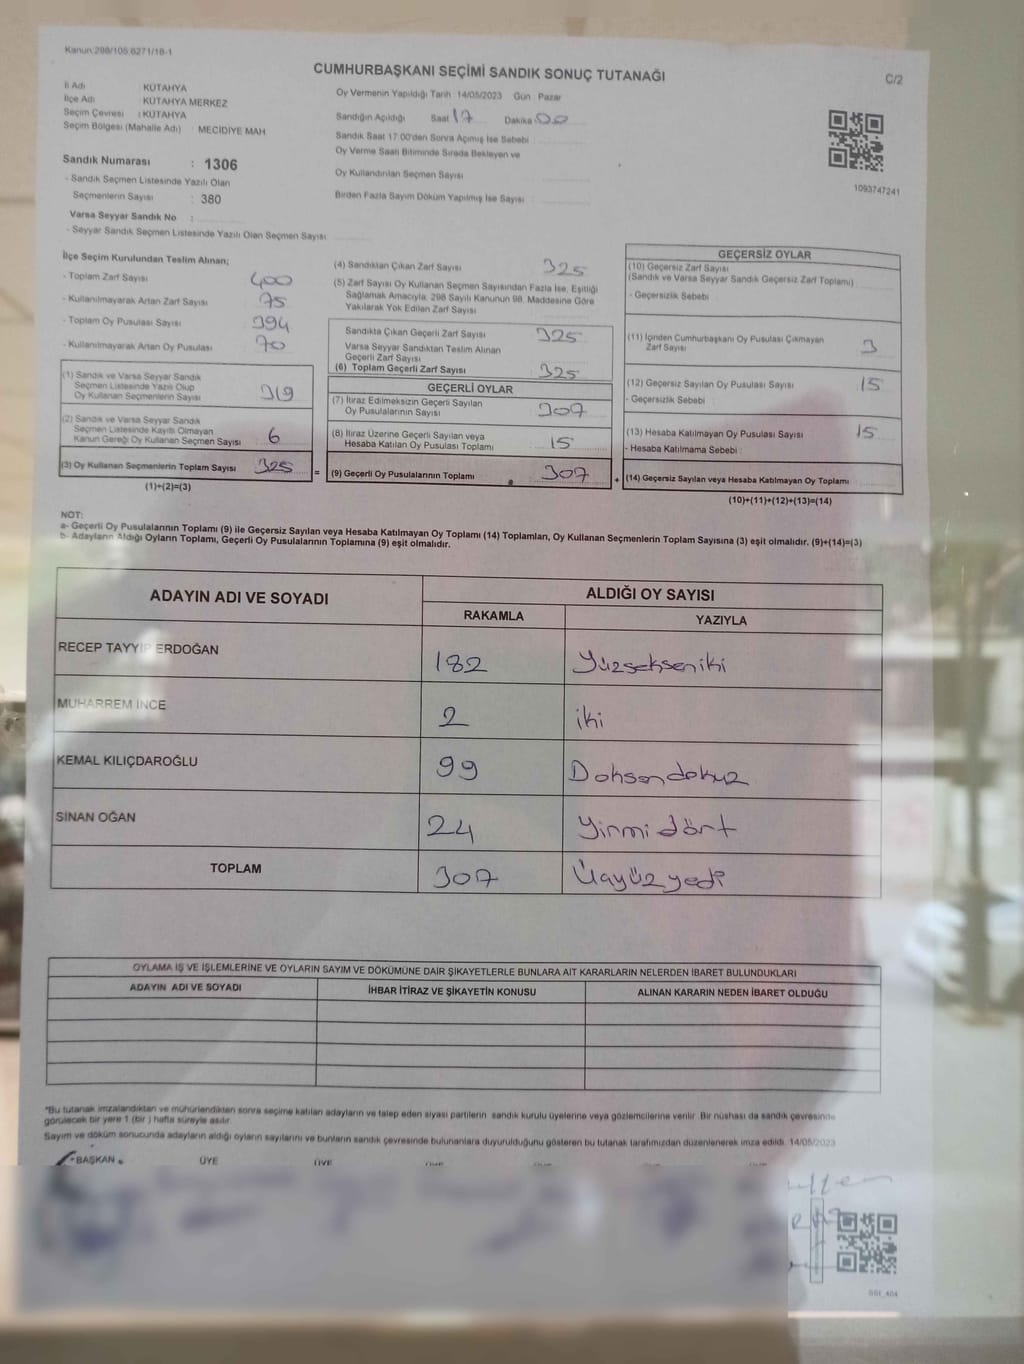 Kanun:298/105,6271/18-1
CUMHURBAŞKANI SEÇİMİ SANDIK SONUÇ TUTANAĞI
C/2
İl Adı KÜTAHYA
İlçe Adı : KÜTAHYA MERKEZ
Seçim Çevresi : KÜTAHYA
Seçim Bölgesi (Mahalle Adı) : MECİDİYE MAH
Sandık Numarası : 1306
- Sandık Seçmen Listesinde Yazılı Olan
Seçmenlerin Sayısı : 380
Varsa Seyyar Sandık No :
- Seyyar Sandık Seçmen Listesinde Yazılı Olan Seçmen Sayısı
Oy Vermenin Yapıldığı Tarih 14/05/2023 Gün Pazar
Sandığın Açıldığı Saat 17 Dakika 00
Sandık Saat 17:00'den Sonra Açılmış İse Sebebi
Oy Verme Saati Bitiminde Sırada Bekleyen ve
Oy Kullandırılan Seçmen Sayısı
Birden Fazla Sayım Döküm Yapılmış İse Sayısı
1093747241
İlçe Seçim Kurulundan Teslim Alınan;
- Toplam Zarf Sayısı 400
- Kullanılmayarak Artan Zarf Sayısı 75
- Toplam Oy Pusulası Sayısı 394
- Kullanılmayarak Artan Oy Pusulası 70
(1) Sandık ve Varsa Seyyar Sandık
Seçmen Listesinde Yazılı Olup
Oy Kullanan Seçmenlerin Sayısı 319
(2) Sandık ve Varsa Seyyar Sandık
Seçmen Listesinde Kayıtlı Olmayan
Kanun Gereği Oy Kullanan Seçmen Sayısı 6
(3) Oy Kullanan Seçmenlerin Toplam Sayısı 325 =
(1)+(2)=(3)
(4) Sandıktan Çıkan Zarf Sayısı 325
(5) Zarf Sayısı Oy Kullanan Seçmen Sayısından Fazla İse, Eşitliği
Sağlamak Amacıyla, 298 Sayılı Kanunun 98. Maddesine Göre
Yakılarak Yok Edilen Zarf Sayısı
Sandıkta Çıkan Geçerli Zarf Sayısı 325
Varsa Seyyar Sandıktan Teslim Alınan
Geçerli Zarf Sayısı
(6) Toplam Geçerli Zarf Sayısı 325
GEÇERLİ OYLAR
(7) İtiraz Edilmeksizin Geçerli Sayılan
Oy Pusulalarının Sayısı 307
(8) İtiraz Üzerine Geçerli Sayılan veya
Hesaba Katılan Oy Pusulası Toplamı 15
(9) Geçerli Oy Pusulalarının Toplamı 307 +
GEÇERSİZ OYLAR
(10) Geçersiz Zarf Sayısı
(Sandık ve Varsa Seyyar Sandık Geçersiz Zarf Toplamı)
- Geçersizlik Sebebi
(11) İçinden Cumhurbaşkanı Oy Pusulası Çıkmayan
Zarf Sayısı 3
(12) Geçersiz Sayılan Oy Pusulası Sayısı 15
- Geçersizlik Sebebi
(13) Hesaba Katılmayan Oy Pusulası Sayısı 15
- Hesaba Katılmama Sebebi
(14) Geçersiz Sayılan veya Hesaba Katılmayan Oy Toplamı
(10)+(11)+(12)+(13)=(14)
NOT:
a- Geçerli Oy Pusulalarının Toplamı (9) ile Geçersiz Sayılan veya Hesaba Katılmayan Oy Toplamı (14) Toplamları, Oy Kullanan Seçmenlerin Toplam Sayısına (3) eşit olmalıdır. (9)+(14)=(3)
b- Adayların Aldığı Oyların Toplamı, Geçerli Oy Pusulalarının Toplamına (9) eşit olmalıdır.
ADAYIN ADI VE SOYADI ALDIĞI OY SAYISI
RAKAMLA YAZIYLA
RECEP TAYYİP ERDOĞAN 182 Yüzsekseniki
MUHARREM İNCE 2 iki
KEMAL KILIÇDAROĞLU 99 Dohsandokuz
SİNAN OĞAN 24 Yirmi dört
TOPLAM 307 Üçyüz yedi
OYLAMA İŞ VE İŞLEMLERİNE VE OYLARIN SAYIM VE DÖKÜMÜNE DAİR ŞİKAYETLERLE BUNLARA AİT KARARLARIN NELERDEN İBARET BULUNDUKLARI
ADAYIN ADI VE SOYADI İHBAR İTİRAZ VE ŞİKAYETİN KONUSU ALINAN KARARIN NEDEN İBARET OLDUĞU
*Bu tutanak imzalandıktan ve mühürlendikten sonra seçime katılan adayların ve talep eden siyasi partilerin sandık kurulu üyelerine veya gözlemcilerine verilir. Bir nüshası da sandık çevresinde
görülecek bir yere 1 (bir) hafta süreyle asılır.
Sayım ve döküm sonucunda adayların aldığı oyların sayılarını ve bunların sandık çevresinde bulunanlara duyurulduğunu gösteren bu tutanak tarafımızdan düzenlenerek imza edildi. 14/05/2023
BAŞKAN ÜYE ÜYE